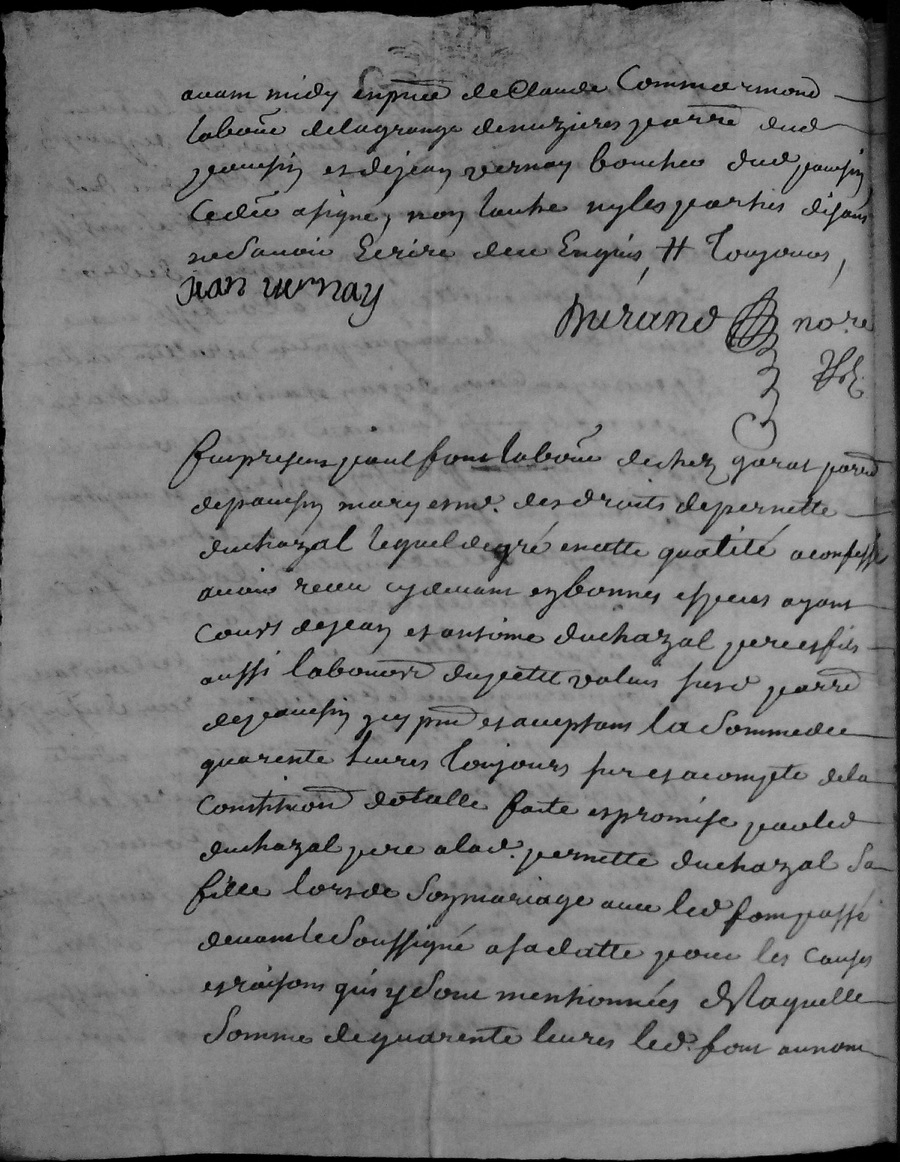 avant midy en pnce de Claude Commarmond
labour de la grange de nuzieres parre dud
panissin et de jean vernay boucher dud panissin
Ced. a signé, non lautre ny les parties disans
ne savoir Ecrire de ce Enquis, # Toujours,
jean vernay
Durand no.re
Fut present paul font labour de chez garat parre
de panissin mary et me. des droits de pernette
duchazal lequel de gré en cette qualité a confessé
avoir receu cy devant en bonnes especes ayant
cours de jean et antoine duchazal pere et fils
aussi laboure du petit valais susd parre
de panissin icy pnt et acceptans la somme de
quarente livres Toujours sur et acompte de la
Constitution dotalle faite et promise par led
duchazal pere a lad. pernette duchazal sa
fille lors de son mariage avec led font passé
devant le soussigné a sa datte pour les causes
et raisons qui y sont mentionnées De laquelle
somme de quarente livres led. font au nom